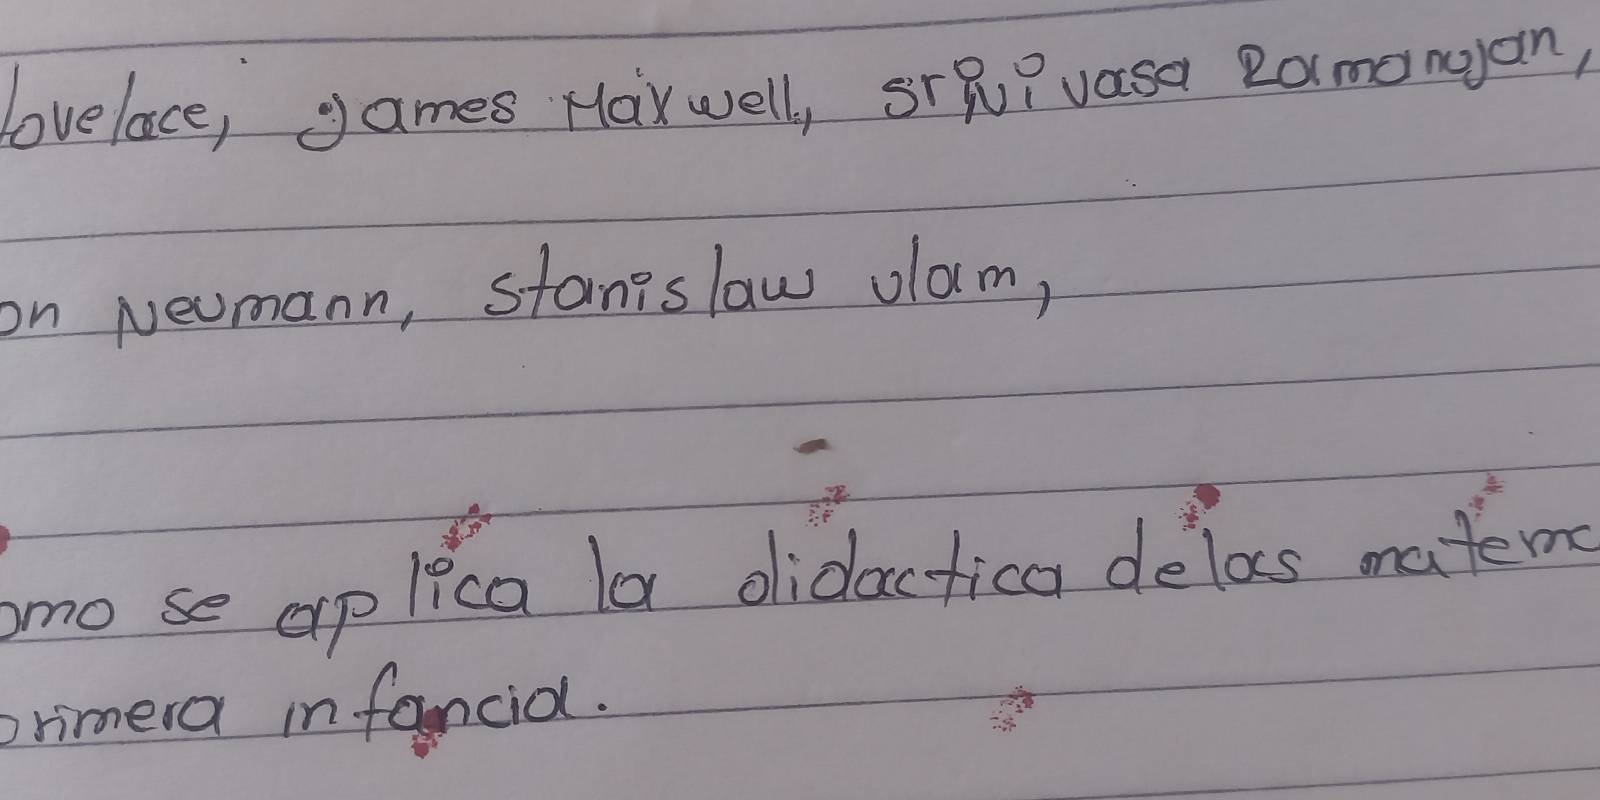 lovelace, james Maxwell, srinivasa Ramanujan,
on Neumann, stanislaw ulam,
omo se aplica la didactica delas matema
primera infancia.